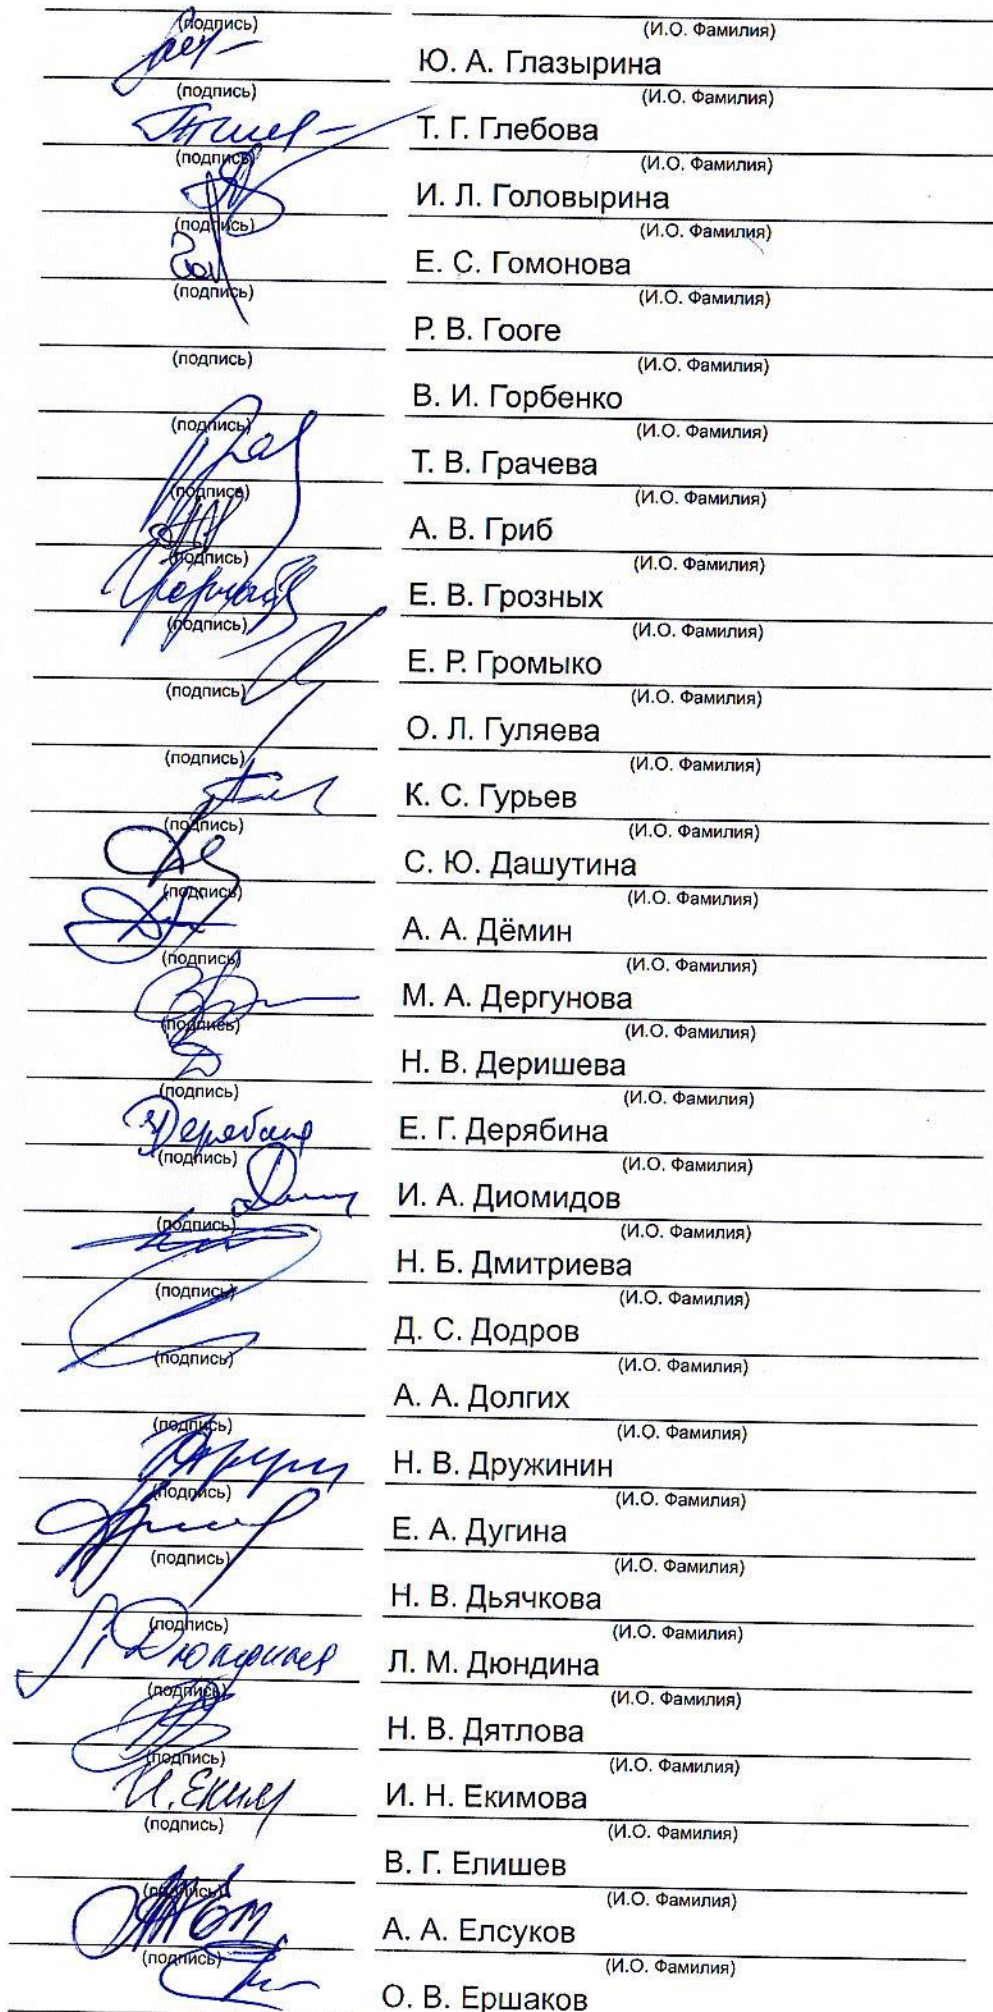 (подпись) (И.О. Фамилия)
Ю. А. Глазырина
(подпись) (И.О. Фамилия)
Т. Г. Глебова
(подпись) (И.О. Фамилия)
И. Л. Головырина
(подпись) (И.О. Фамилия)
Е. С. Гомонова
(подпись) (И.О. Фамилия)
Р. В. Гооге
(подпись) (И.О. Фамилия)
В. И. Горбенко
(подпись) (И.О. Фамилия)
Т. В. Грачева
(подпись) (И.О. Фамилия)
А. В. Гриб
(подпись) (И.О. Фамилия)
Е. В. Грозных
(подпись) (И.О. Фамилия)
Е. Р. Громыко
(подпись) (И.О. Фамилия)
О. Л. Гуляева
(подпись) (И.О. Фамилия)
К. С. Гурьев
(подпись) (И.О. Фамилия)
С. Ю. Дашутина
(подпись) (И.О. Фамилия)
А. А. Дёмин
(подпись) (И.О. Фамилия)
М. А. Дергунова
(подпись) (И.О. Фамилия)
Н. В. Деришева
(подпись) (И.О. Фамилия)
Е. Г. Дерябина
(подпись) (И.О. Фамилия)
И. А. Диомидов
(подпись) (И.О. Фамилия)
Н. Б. Дмитриева
(подпись) (И.О. Фамилия)
Д. С. Додров
(подпись) (И.О. Фамилия)
А. А. Долгих
(подпись) (И.О. Фамилия)
Н. В. Дружинин
(подпись) (И.О. Фамилия)
Е. А. Дугина
(подпись) (И.О. Фамилия)
Н. В. Дьячкова
(подпись) (И.О. Фамилия)
Л. М. Дюндина
(подпись) (И.О. Фамилия)
Н. В. Дятлова
(подпись) (И.О. Фамилия)
И. Н. Екимова
(подпись) (И.О. Фамилия)
В. Г. Елишев
(подпись) (И.О. Фамилия)
А. А. Елсуков
(подпись) (И.О. Фамилия)
О. В. Ершаков